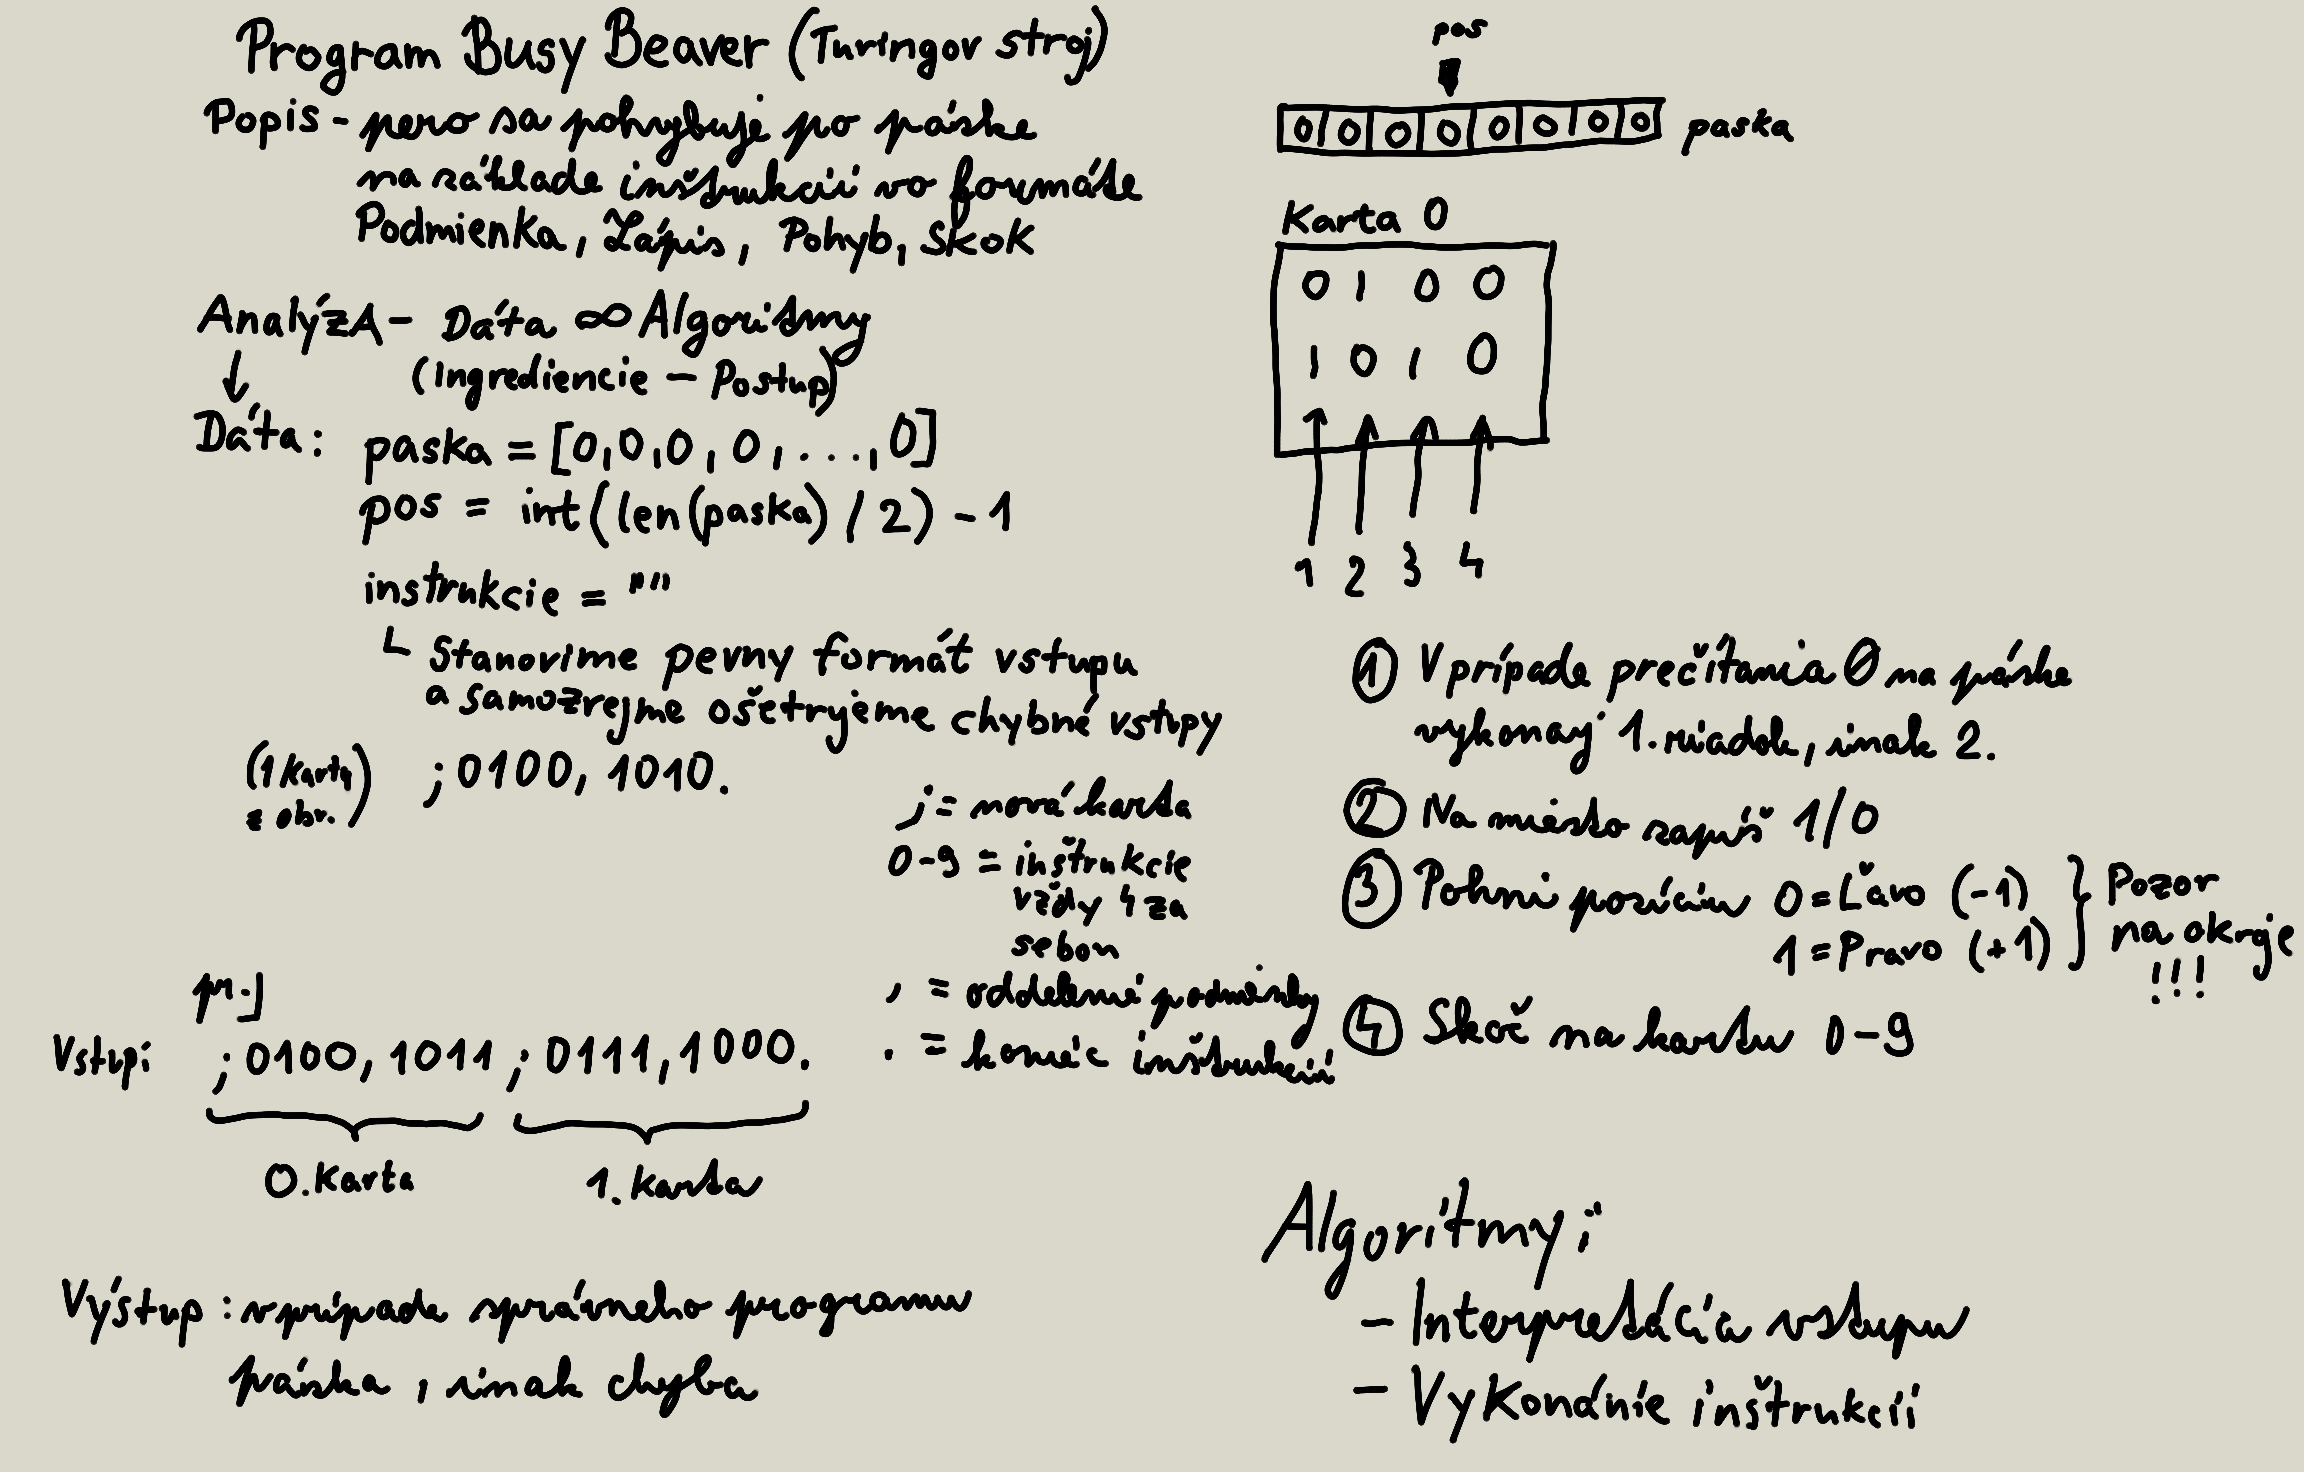 Program Busy Beaver (Turingov stroj)
Popis - pero sa pohybuje po páske
na základe inštrukcií vo formáte
Podmienka, Zápis, Pohyb, Skok
AnalýzA - Dáta ∞ Algoritmy
↓ (Ingrediencie - Postup)
Dáta: paska = [0,0,0,0,...,0]
pos = int(len(paska) / 2) - 1
instrukcie = ""
Stanovime pevny formát vstupu
a samozrejme ošetryjeme chybné vstupy
(1 karta
z obr.)
;0100, 1010.
; = nová karta
0-9 = inštrukcie
vždy 4 za
sebou
, = oddelenie podmienky
. = koniec inštrukcií
pr.]
Vstup: ;0100, 1011 ; 0111, 1000.
0. Karta
1. karta
Výstup: v prípade správneho programu
páska, inak chyba
pos
0 0 0 0 0 0 0 0 paska
Karta 0
0 1 0 0
1 0 1 0
1 2 3 4
① V prípade prečítania 0 na páske
vykonaj 1. riadok, inak 2.
② Na miesto zapíš 1/0
③ Pohni pozíciu 0 = Ľavo (-1)
1 = Pravo (+1)
Pozor
na okrje
!!!
④ Skoč na kartu 0-9
Algoritmy:
- Interpretácia vstupu
- Vykonánie inštrukcií